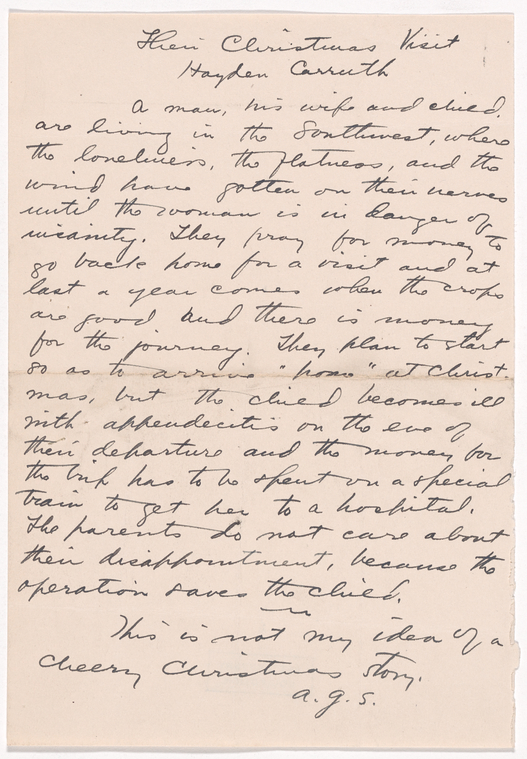 Their Christmas Visit
Hayden Carruth
A man, his wife and child,
are living in the Southwest, where
the loneliness, the flatness, and the
wind have gotten on their nerves
until the woman is in danger of
insanity. They pray for money to
go back home for a visit and at
last a year comes when the crops
are good and there is money
for the journey. They plan to start
so as to arrive "home" at Christ-
mas, but the child becomes ill
with appendicitis on the eve of
their departure and the money for
the trip has to be spent on a special
train to get her to a hospital.
The parents do not care about
their disappointment, because the
operation saves the child.
This is not my idea of a
cheery Christmas story.
A. G. S.